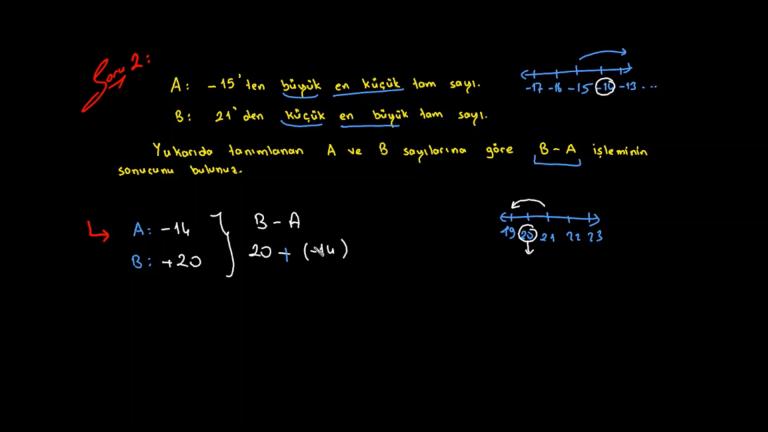 Soru 2:
A: -15'ten büyük en küçük tam sayı.
-17 -16 -15 -14 -13 ...
B: 21'den küçük en büyük tam sayı.
Yukarıda tanımlanan A ve B sayılarına göre B-A işleminin
sonucunu bulunuz.
A: -14
B: +20
B-A
20 + (-14)
19 20 21 22 23